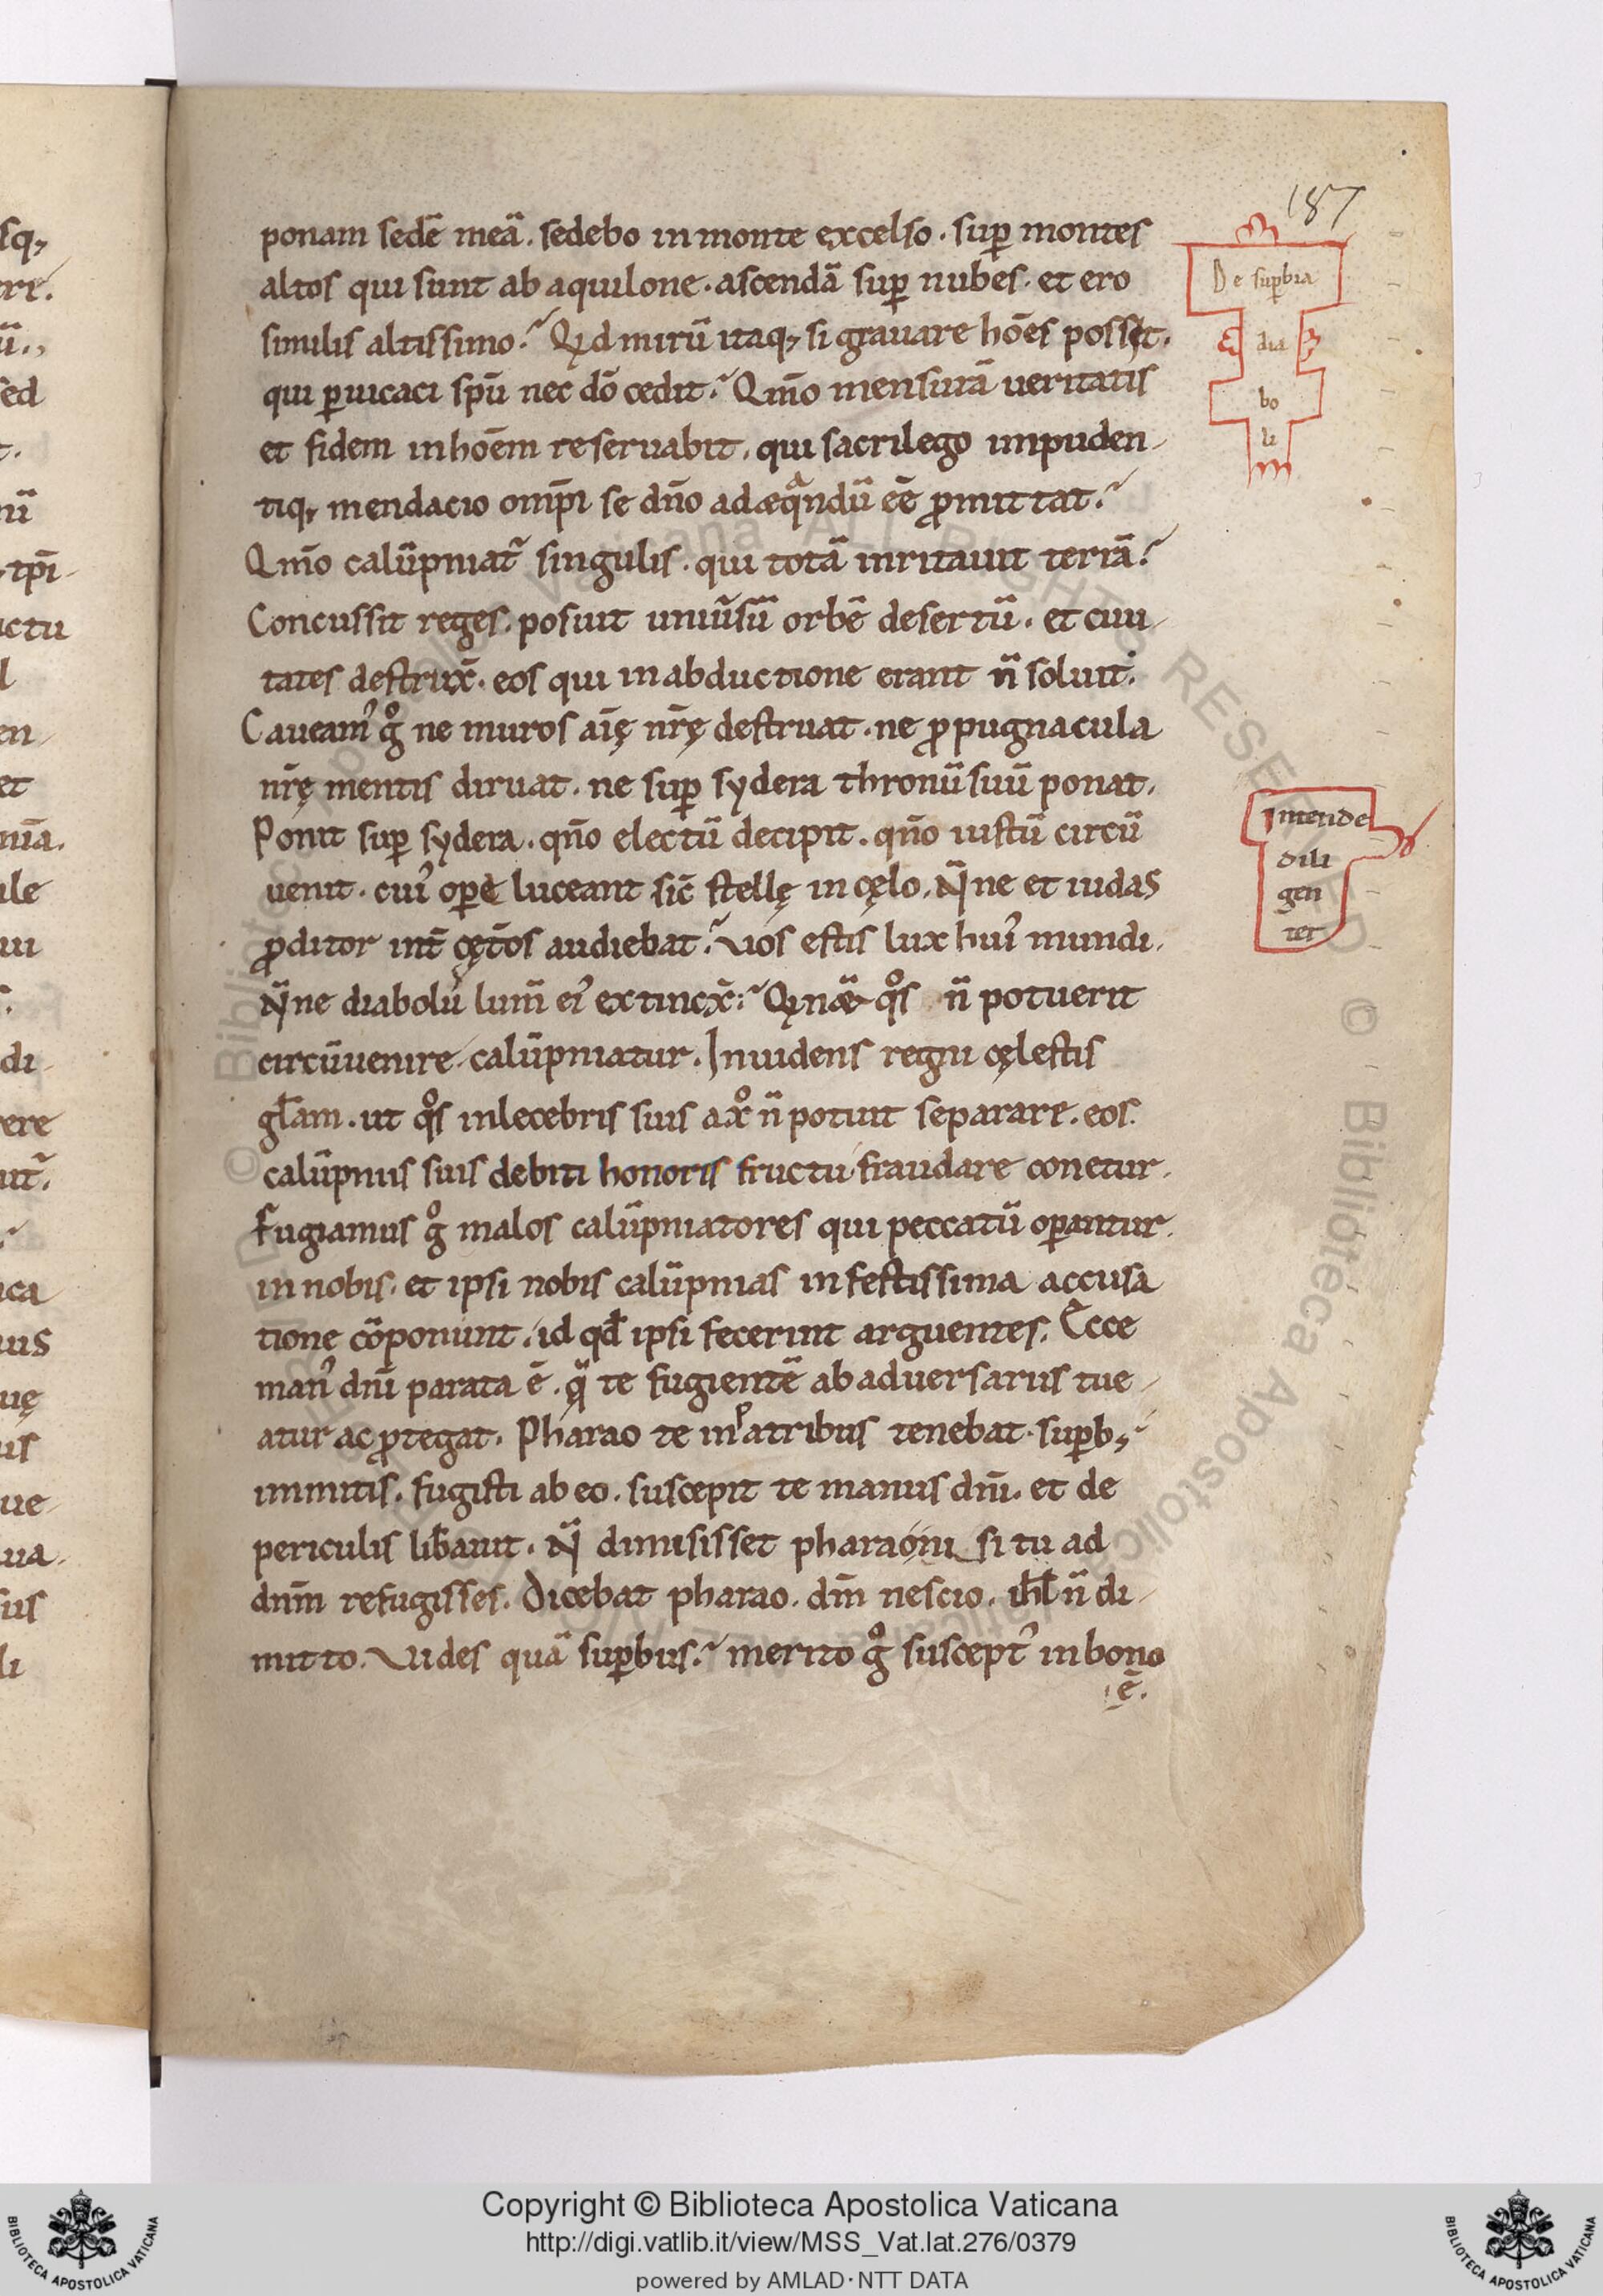 187
ponam sedē meã. sedebo in monte excelso. suꝑ montes
altos qui sunt ab aquilone. ascendã suꝑ nubes. et ero
similis altissimo. Qid mirũ itaq; si grauare hoēs posset.
qui ꝑuicaci spũ nec dō cedit. Qm̄o mensurã ueritatis
et fidem in hoēm reseruabit. qui sacrilego impuden
tiq; mendacio omp̄i se dn̄o adæqᵃndũ eē ꝓmittat.
Qm̄o calũpniat᷑ singulis. qui totã inritauit terrã.
Concussit reges. posuit uniũsũ orbē desertũ. et ciui
tates destrux̄. eos qui in abductione erant n̄ soluit.
Caueam᾽ gͦ ne muros aīę nr̄ę destruat. ne ꝓpugnacula
nr̄ę mentis diruat. ne suꝑ sydera thronũ suũ ponat.
Ponit suꝑ sydera. qn̄o electũ decipit. qn̄o iustũ circũ
uenit. cui᾽ oꝑe luceant sic̄ stellę in cęlo. N̄ne et iudas
ꝓditor int̄ cęt̄os audiebat. Vos estis lux hui᾽ mundi.
N̄ne diabolus lum̄ ei᾽ extincx̄. qͦs n̄ potuerit
circũuenire calũpniatur. Inuidens regni cęlestis
gl̄am. ut qͦs inlecebris suis a xͦ n̄ potuit separare. eos
calũpniis suis debiti honoris fructu fraudare conetur.
Fugiamus gͦ malos calũpniatores qui peccatũ oꝑantur
in nobis. et ipsi nobis calũpnias infestissima accusa
tione cõponunt. id qđ ipsi fecerint arguentes. Ecce
man᾽ dn̄i parata ē. q̄ te fugientē ab aduersariis tue
atur ac ꝓtegat. Pharao te in atribus tenebat. suꝑb;
immitis. fugisti ab eo. suscepit te manus dn̄i. et de
periculis lib̄auit. N̄ dimisisset pharaoni si tu ad
dnm̄ refugisses. Dicebat pharao. dm̄ nescio. ihl̄ n̄ di
mitto. Vides quã suꝑbus. merito gͦ suscept᾽ in bono
ē.
De suꝑbia
dia
bo
li
Intende
dili
gen
ter
Copyright © Biblioteca Apostolica Vaticana
http://digi.vatlib.it/view/MSS_Vat.lat.276/0379
powered by AMLAD·NTT DATA
BIBLIOTECA APOSTOLICA VATICANA
BIBLIOTECA APOSTOLICA VATICANA